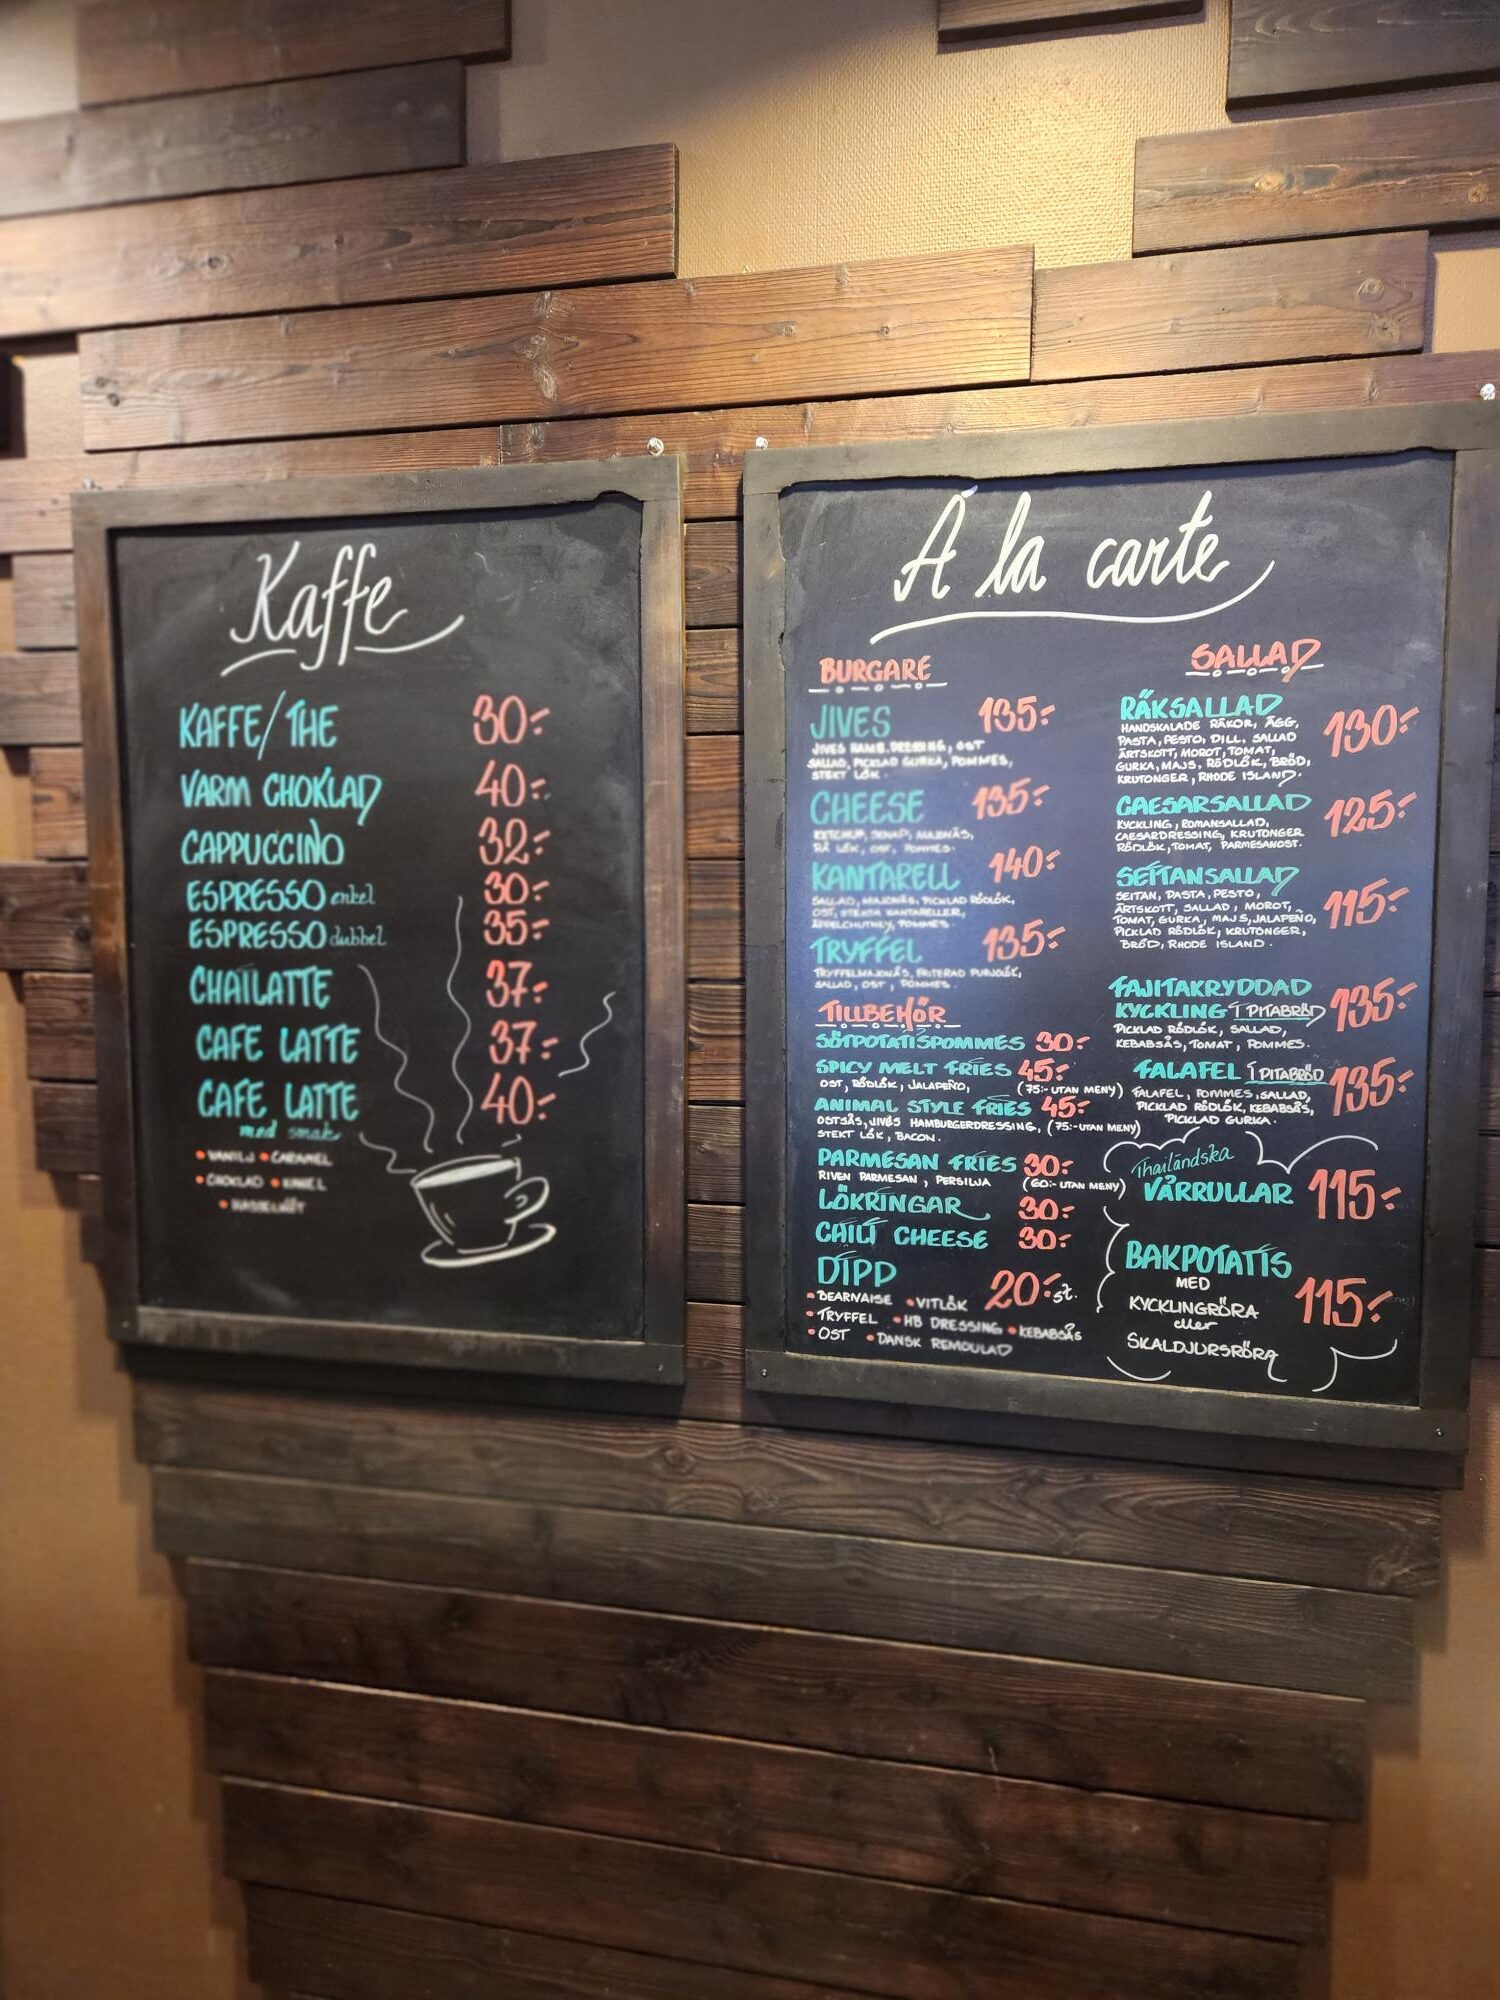 Kaffe
KAFFE/THE 30:-
VARM CHOKLAD 40:-
CAPPUCCINO 32:-
ESPRESSO enkel 30:-
ESPRESSO dubbel 35:-
CHAILATTE 37:-
CAFE LATTE 37:-
CAFE LATTE 40:-
med smak
• VANILJ • CARAMEL
• CHOKLAD • KANEL
• HASSELNÖT
À la carte
BURGARE
JIVES 135:-
JIVES HAMB.DRESSING, OST
SALLAD, PICKLAD GURKA, POMMES,
STEKT LÖK.
CHEESE 135:-
KETCHUP, SENAP, MAJONÄS,
RÅ LÖK, OST, POMMES.
KANTARELL 140:-
SALLAD, MAJONÄS, PICKLAD RÖDLÖK,
OST, STEKTA KANTARELLER,
ÄPPELCHUTNEY, POMMES.
TRYFFEL 135:-
TRYFFELMAJONÄS, FRITERAD PURJOLÖK,
SALLAD, OST, POMMES.
TILLBEHÖR
SÖTPOTATISPOMMES 30:-
SPICY MELT FRIES 45:-
OST, RÖDLÖK, JALAPEÑO, (75:- UTAN MENY)
ANIMAL STYLE FRIES 45:-
OSTSÅS, JIVES HAMBURGERDRESSING, (75:- UTAN MENY)
STEKT LÖK, BACON.
PARMESAN FRIES 30:-
RIVEN PARMESAN, PERSILJA (60:- UTAN MENY)
LÖKRINGAR 30:-
CHILI CHEESE 30:-
DIPP 20:- st.
• BEARNAISE • VITLÖK
• TRYFFEL • HB DRESSING • KEBABSÅS
• OST • DANSK REMOULAD
SALLAD
RÄKSALLAD 130:-
HANDSKALADE RÄKOR, ÄGG,
PASTA, PESTO, DILL, SALLAD
ÄRTSKOTT, MOROT, TOMAT,
GURKA, MAJS, RÖDLÖK, BRÖD,
KRUTONGER, RHODE ISLAND.
CAESARSALLAD 125:-
KYCKLING, ROMANSALLAD,
CAESARDRESSING, KRUTONGER
RÖDLÖK, TOMAT, PARMESANOST.
SEITANSALLAD 115:-
SEITAN, PASTA, PESTO,
ÄRTSKOTT, SALLAD, MOROT,
TOMAT, GURKA, MAJS, JALAPEÑO,
PICKLAD RÖDLÖK, KRUTONGER,
BRÖD, RHODE ISLAND.
FAJITAKRYDDAD
KYCKLING I PITABRÖD 135:-
PICKLAD RÖDLÖK, SALLAD,
KEBABSÅS, TOMAT, POMMES.
FALAFEL I PITABRÖD 135:-
FALAFEL, POMMES, SALLAD,
PICKLAD RÖDLÖK, KEBABSÅS,
PICKLAD GURKA.
Thailändska
VÅRRULLAR 115:-
BAKPOTATIS 115:-
MED
KYCKLINGRÖRA
eller
SKALDJURSRÖRA